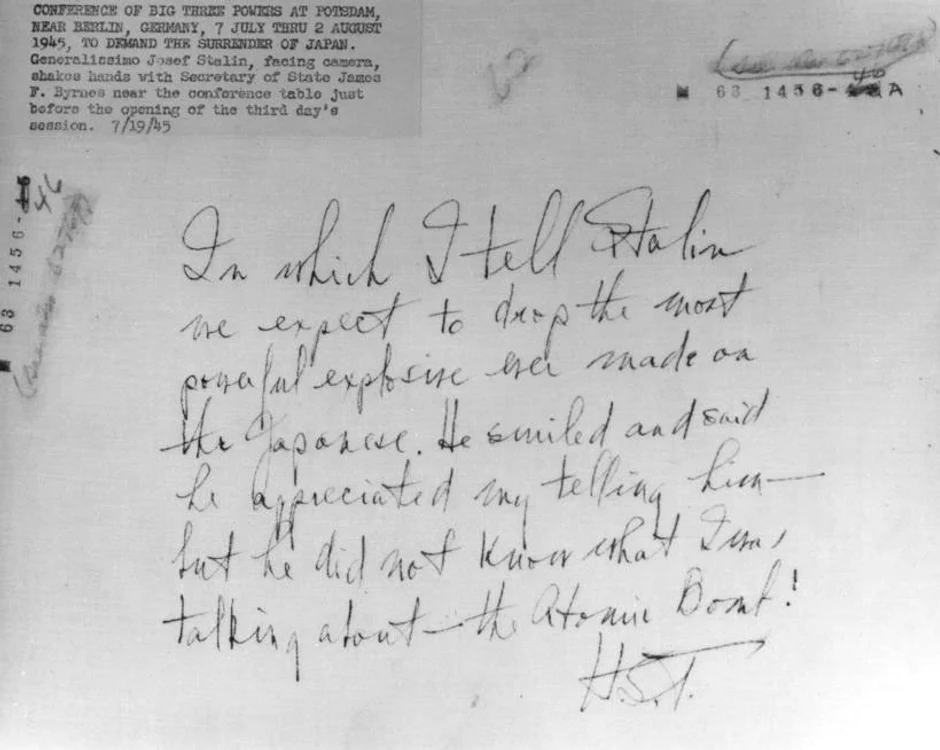 CONFERENCE OF BIG THREE POWERS AT POTSDAM,
NEAR BERLIN, GERMANY, 7 JULY THRU 2 AUGUST
1945, TO DEMAND THE SURRENDER OF JAPAN.
Generalissimo Josef Stalin, facing camera,
shakes hands with Secretary of State James
F. Byrnes near the conference table just
before the opening of the third day's
session. 7/19/45
63 1456- A
63 1456-
46
In which I tell Stalin
we expect to drop the most
powerful explosive ever made on
the Japanese. He smiled and said
he appreciated my telling him—
but he did not know what I was
talking about—the Atomic Bomb!
H.S.T.